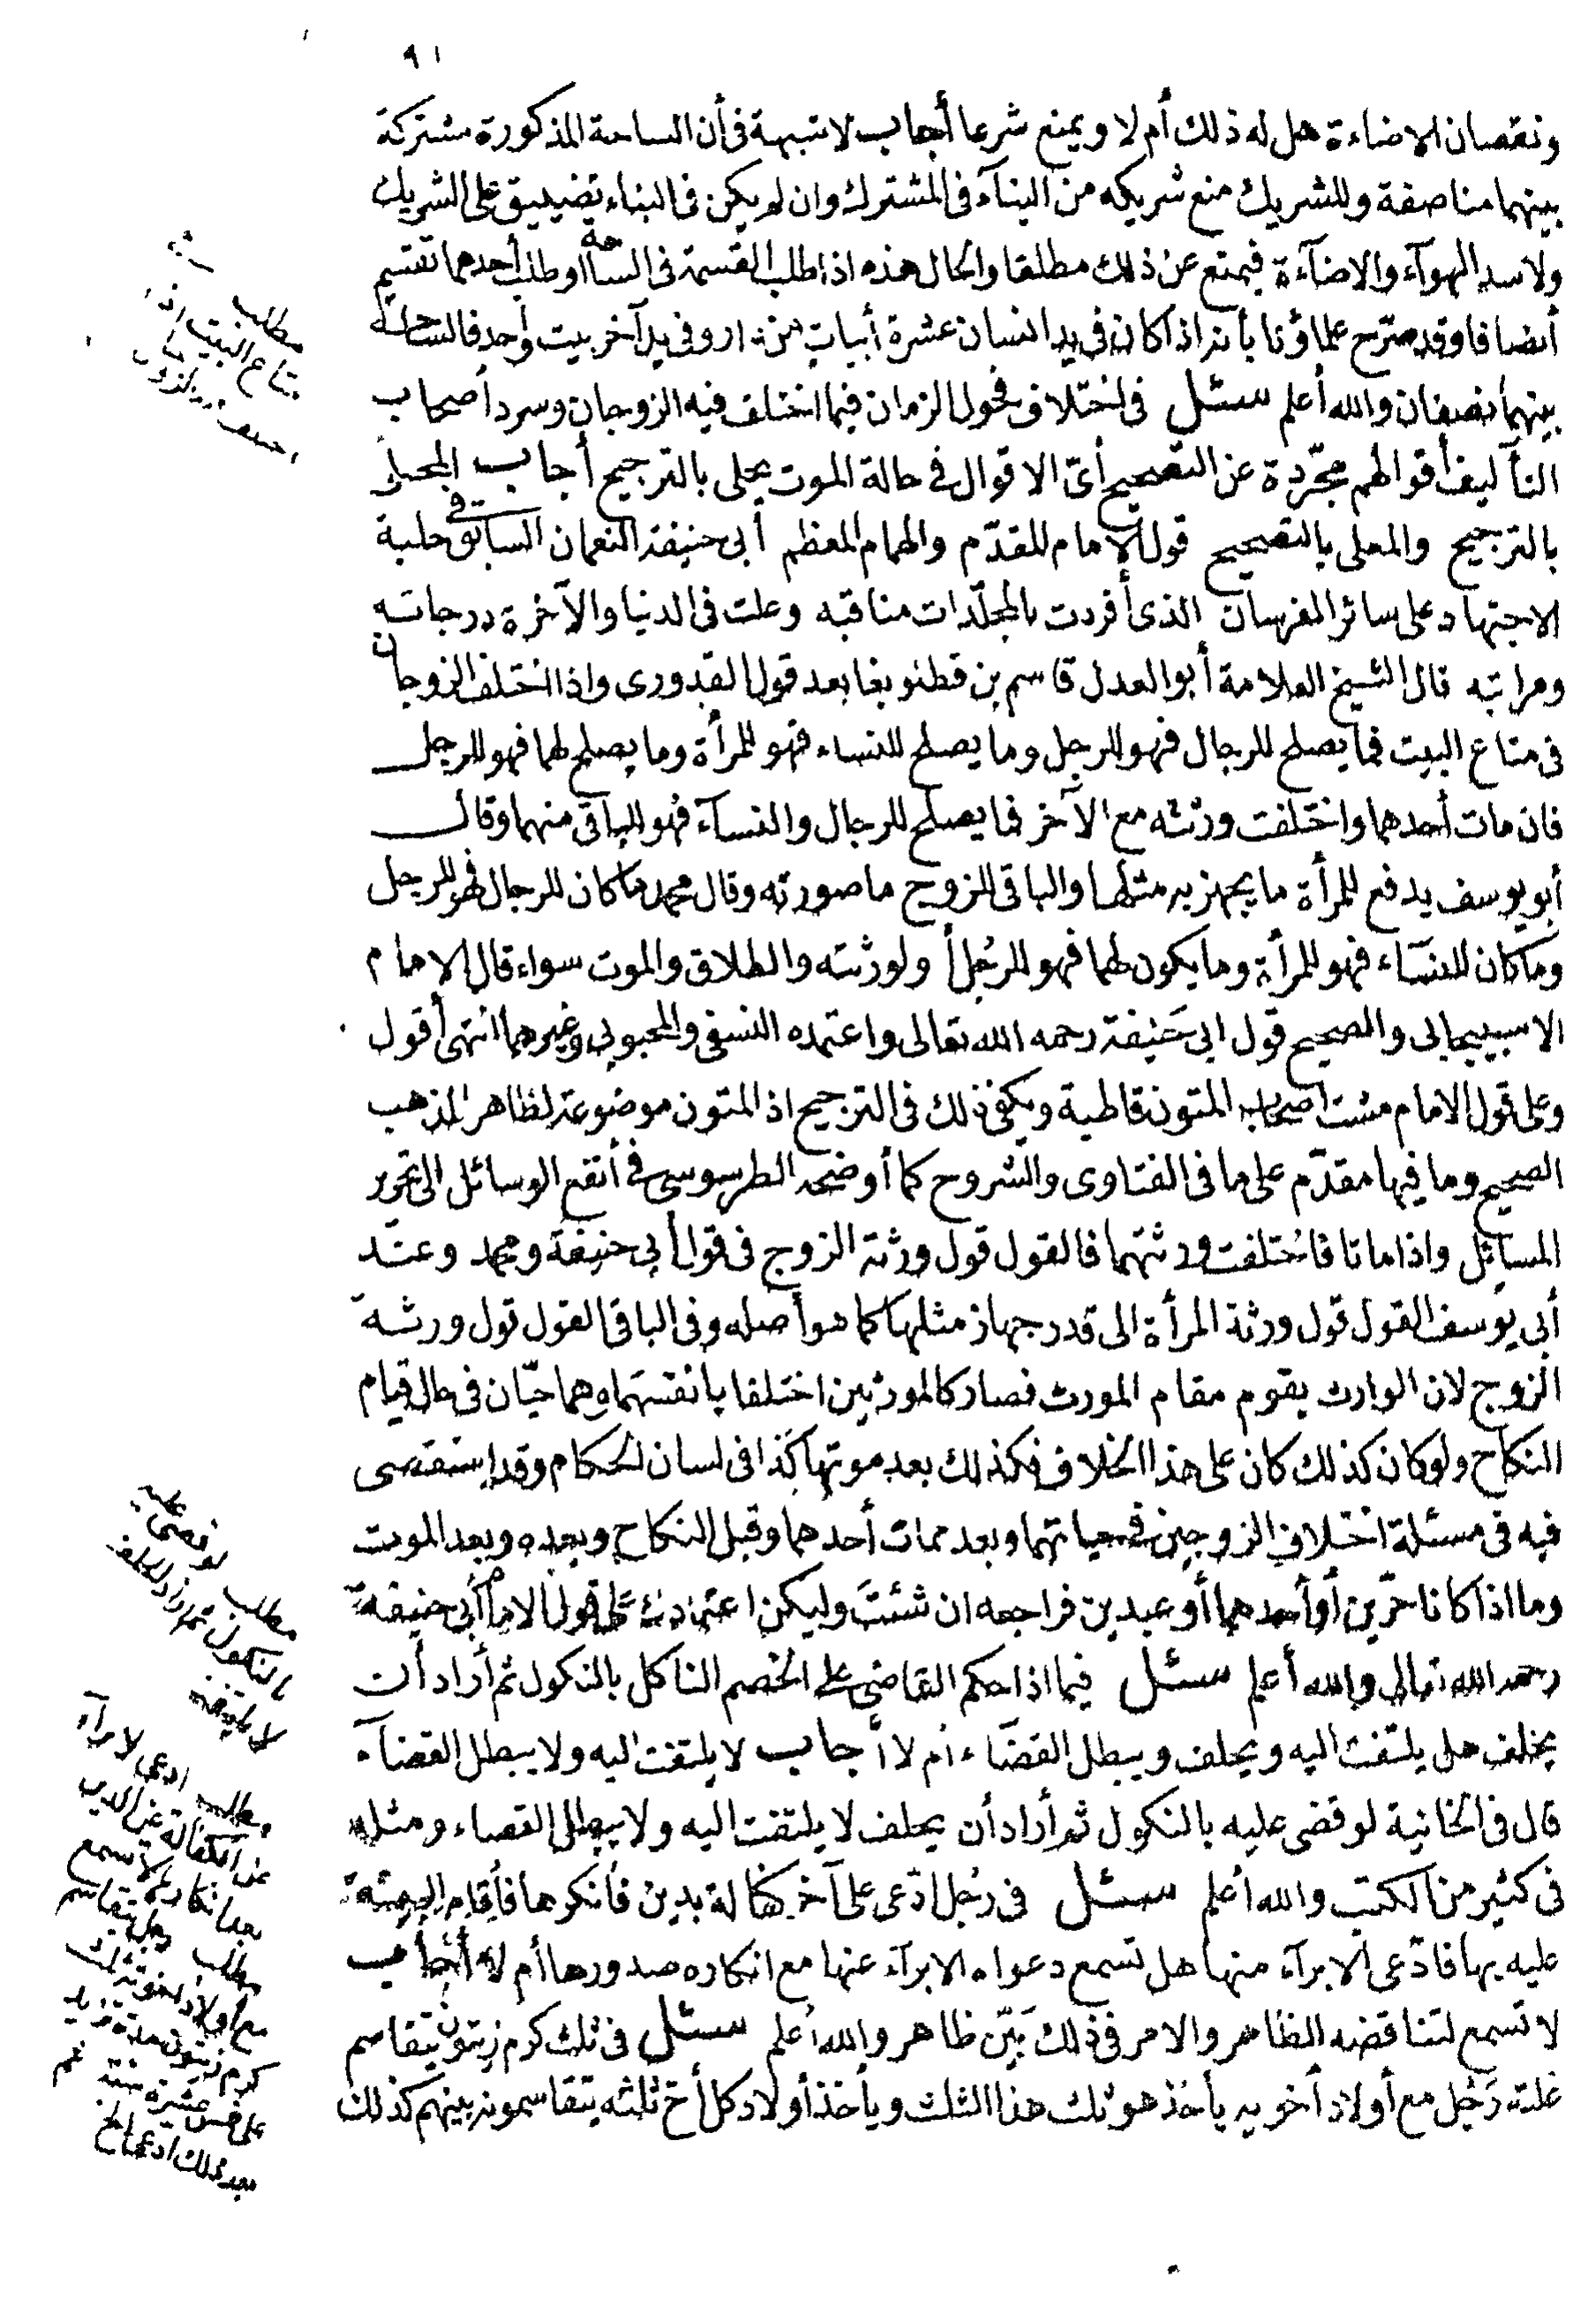 ٩١
ونقصان الاضاءة هل له ذلك أم لا ويمنع شرعا أجاب لا شبهة فى أن الساحة المذكورة مشتركة
بينهما مناصفة وللشريك منع شريكه من البنآء فى المشترك وان لم يكن فى البناء تضييق على الشريك
ولا سد الهوآء والاضآءة فيمنع عن ذلك مطلقا والحال هذه اذا طلب القسمة فى الساحة أو طلب أحدهما تقسيم
أنصافا وقد صرّح علماؤنا بأنه اذا كان فى يد انسان عشرة أبيات من دار وفى يد آخر بيت وأحد فالساحة
بينهما نصفان والله أعلم سئل فى اختلاف فحول الزمان فيما اختلف فيه الزوجان وسرد أصحاب
التآليف أقوالهم مجرّدة عن التصحيح أىّ الاقوال فى حالة الموت يحلى بالترجيح أجاب المحلىّ
بالترجيح والمعلى بالتصحيح قول الامام المقدّم والهمام المعظم أبى حنيفة النعمان السابق فى حلبة
الاجتهاد على سائر الفرسان الذى أفردت بالمجلّدات مناقبه وعلت فى الدنيا والآخرة درجاته
ومراتبه قال الشيخ العلامة أبو العدل قاسم بن قطلوبغا بعد قول القدورى واذا اختلف الزوجان
فى متاع البيت فما يصلح للرجال فهو للرجل وما يصلح للنساء فهو للمرأة وما يصلح لهما فهو للرجل
فان مات أحدهما واختلفت ورثته مع الآخر فما يصلح للرجال والنسآء فهو للباقى منهما وقال
أبو يوسف يدفع للمرأة ما يجهز به مثلها والباقى للزوج ما صورته وقال محمد ما كان للرجال فهو للرجل
وما كان للنسآء فهو للمرأة وما يكون لهما فهو للرجل أو لورثته والطلاق والموت سواء قال الامام
الاسبيجابى والصحيح قول ابى حنيفة رحمه الله تعالى واعتمده النسفى والمحبوبى وغيرهما انتهى أقول
وعلى قول الامام مشت اصحاب المتون قاطبة ويكفى ذلك فى الترجيح اذ المتون موضوعة لظاهر المذهب
الصحيح وما فيها مقدّم على ما فى الفتاوى والشروح كما أوضحه الطرسوسى فى أنفع الوسائل الى تحرير
المسائل واذا ماتا فاختلفت ورثتهما فالقول قول ورثة الزوج فى قول أبى حنيفة ومحمد وعند
أبى يوسف القول قول ورثة المرأة الى قدر جهاز مثلها كما هو أصله وفى الباقى القول قول ورثة
الزوج لان الوارث يقوم مقام المورث فصار كالمورثين اختلفا بأنفسهما وهما حيّان فى حال قيام
النكاح ولو كان كذلك كان على هذا الخلاف فكذلك بعد موتهما كذا فى لسان الحكام وقد استقصى
فيه فى مسئلة اختلاف الزوجين فى حياتهما وبعد ممات أحدهما وقبل النكاح وبعده وبعد الموت
وما اذا كانا حرّين أو أحدهما أو عبدين فراجعه ان شئت وليكن اعتمادك على قول الامام أبى حنيفة
رحمه الله تعالى والله أعلم سئل فيما اذا حكم القاضى على الخصم الناكل بالنكول ثم أراد أن
يحلف هل يلتفت اليه ويحلف ويبطل القضاء أم لا أجاب لا يلتفت اليه ولا يبطل القضآء
قال فى الخانية لو قضى عليه بالنكول ثم أراد أن يحلف لا يلتفت اليه ولا يبطل القضاء ومثله
فى كثير من الكتب والله أعلم سئل فى رجل ادّعى على آخر كفالة بدين فأنكرها فأقام البينة
عليه بها فادّعى الابرآء منها هل تسمع دعواه الابرآء عنها مع انكاره صدورها أم لا أجاب
لا تسمع لتناقضه الظاهر والامر فى ذلك بيّن ظاهر والله أعلم سئل فى ثلث كرم زيتون يتقاسم
غلته رجل مع أولاد أخويه يأخذ هو ثلث هذا الثلث ويأخذ أولاد كل أخ ثلثه يتقاسمونه بينهم كذلك
مطلب
متاع البيت اذا
مطلب لو قضى عليه
بالنكول ثم أراد الحلف
لا يلتفت
مطلب ادعى الابرآء
عن الكفالة عن الدين
بعد انكارها لا تسمع
مطلب رجل يتقاسم
مع أولاد أخويه ثلث
كرم زيتون مدة تزيد
على خمس عشرة سنة ثم
بعد ذلك ادعى الخ